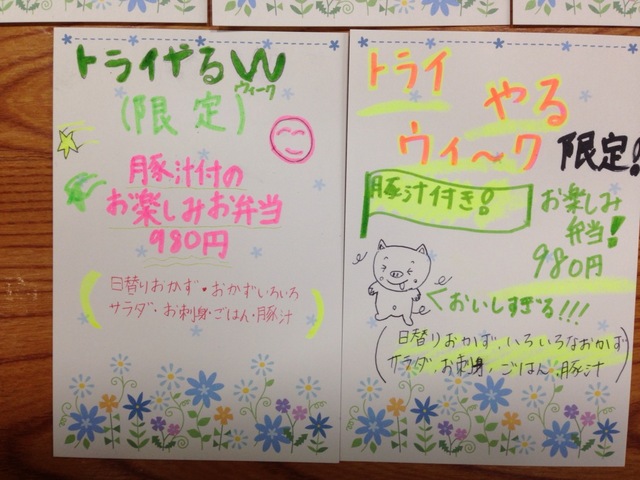 トライやるW
ウィーク
(限定)
豚汁付の
お楽しみお弁当
980円
日替りおかず・おかずいろいろ
サラダ・お刺身・ごはん・豚汁
トライ
やる
ウィ〜ク 限定!
豚汁付き!
お楽しみ
弁当!
980円
おいしすぎる!!!
(日替りおかず、いろいろなおかず
サラダ、お刺身、ごはん、豚汁)